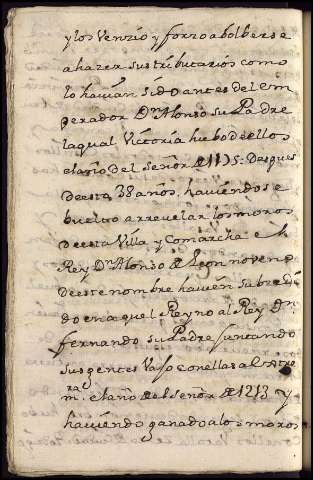 y los Venzio y forzo a bolberse
a hazer sus tributarios como
lo havian sido antes del em
perador Dn. Alonso su Padre
la qual Victoria hubo de ellos
el año del Señor de 1175: Despues
de esta 38 años, haviendose
buelto a rrevelar los moros
de esta Villa y Comarcha el
Rey Dn. Alonso de Leon noveno
de este nombre havien subcedi
do en aquel Reyno al Rey Dn.
fernando su Padre juntando
sus gentes Vaxo con ellas al
m. el año del Señor de 1213 y
haviendo ganado a los moros